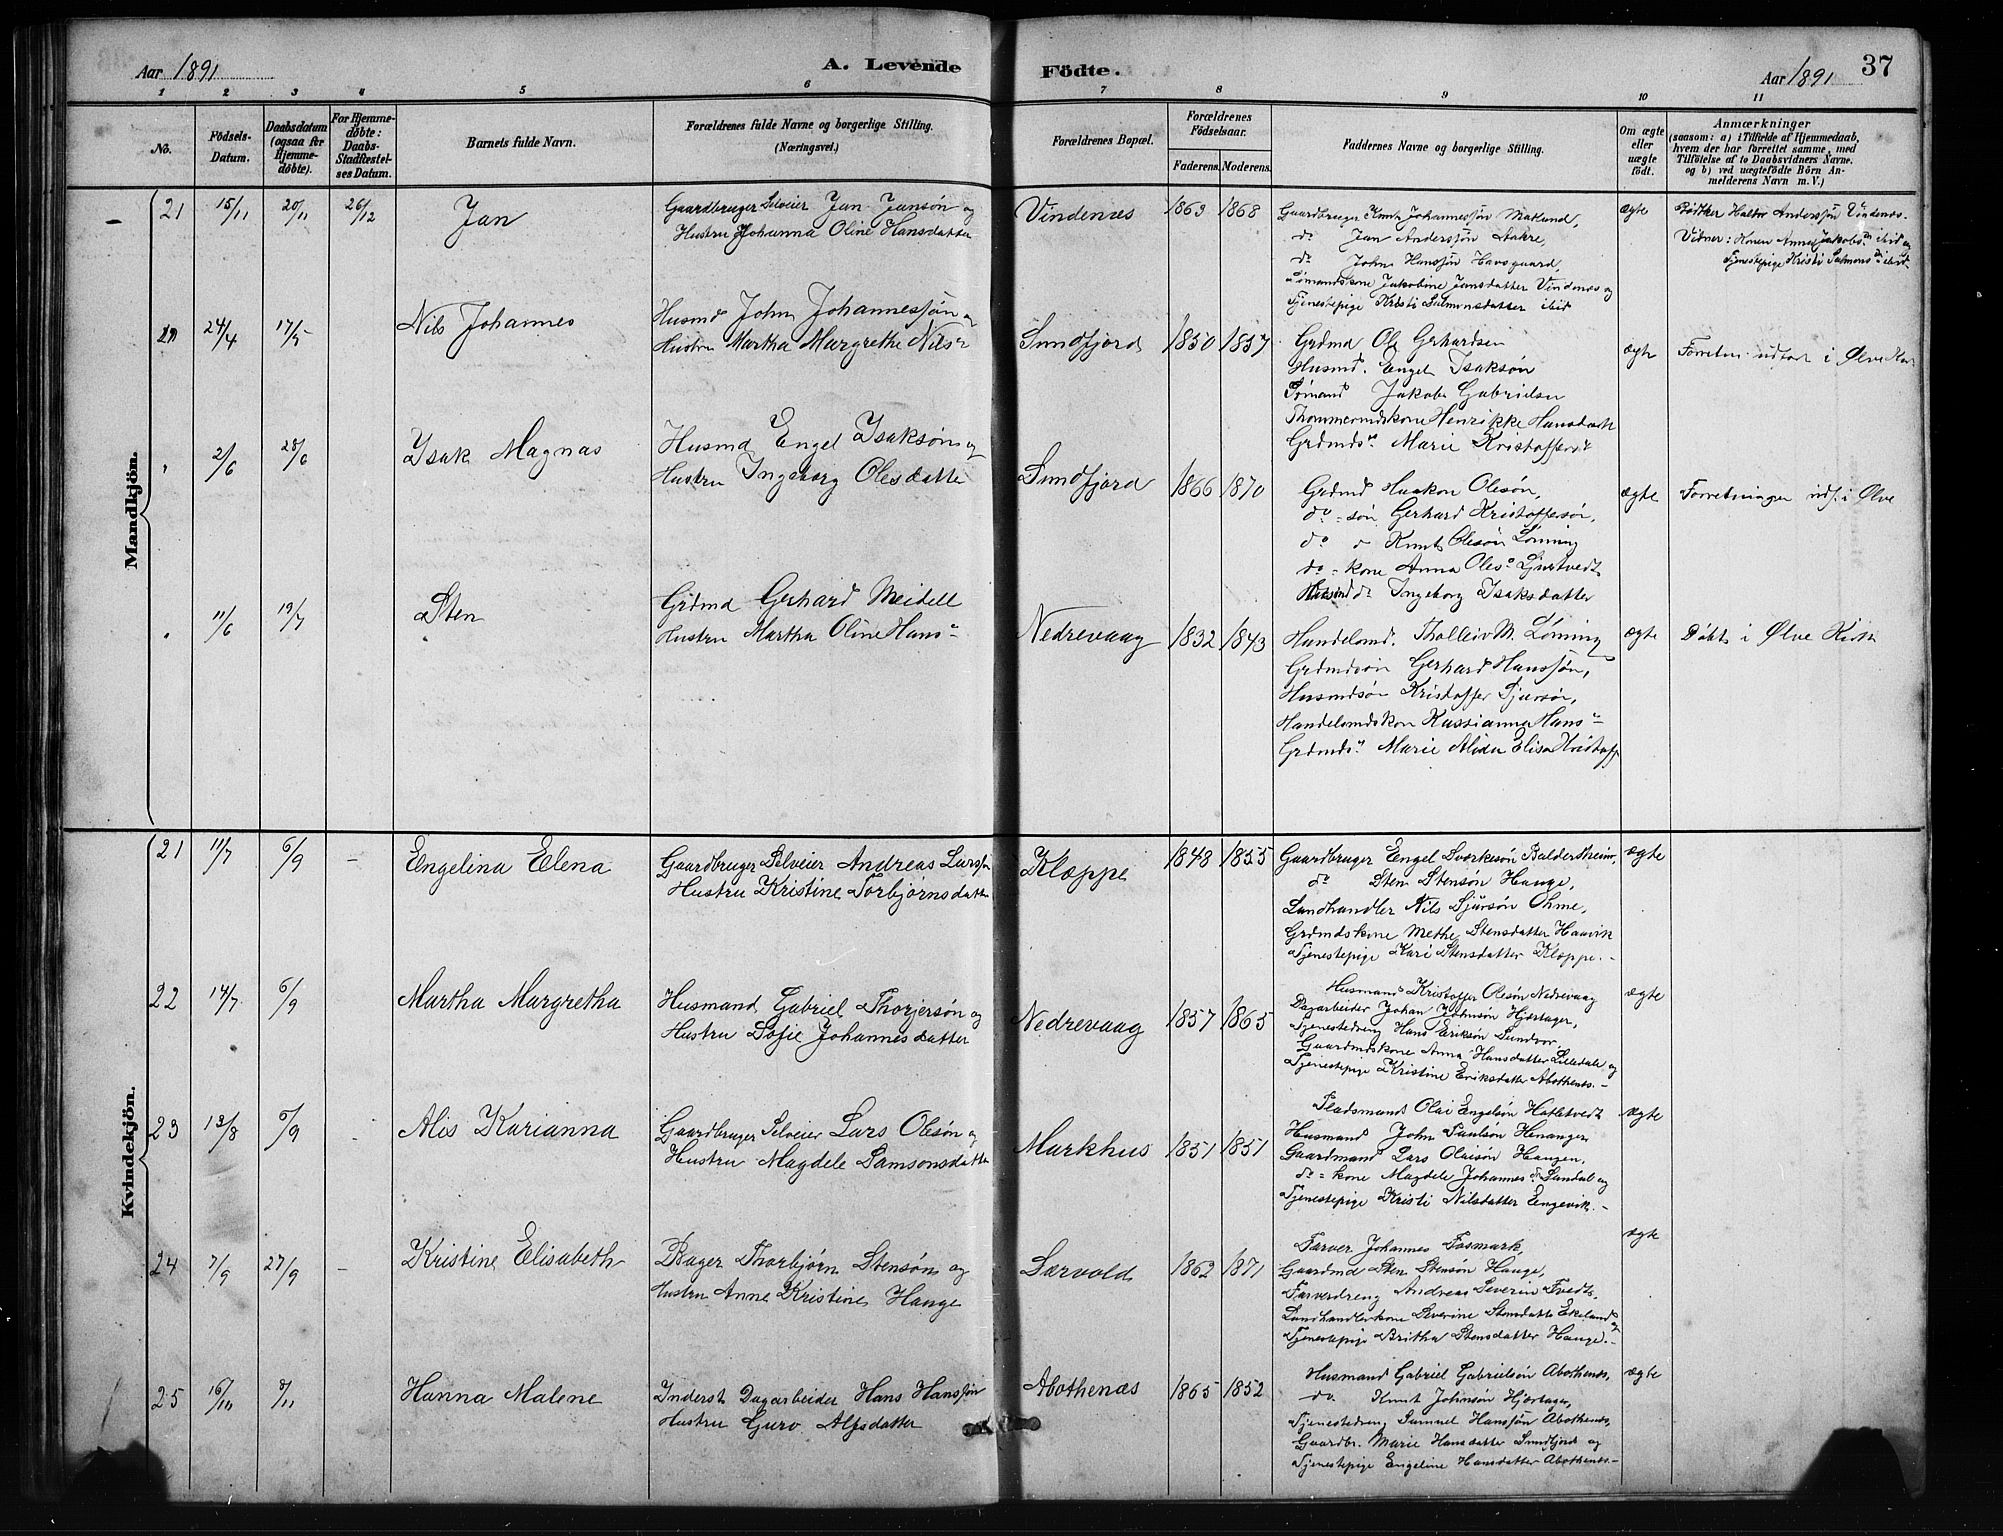 Aar 1891
A. Levende
Födte.
Aar 1891
37
1 2 3 4 5 6 7 8 9 10 11
No.
Födsels-
Datum.
Daabsdatum
(ogsaa for
Hjemme-
döbte).
For Hjemme-
döbte:
Daabs-
Stadfæstel-
ses Datum.
Barnets fulde Navn.
Forældrenes fulde Navne og borgerlige Stilling.
(Næringsvei.)
Forældrenes Bopæl.
Forældrenes
Födselsaar.
Faderens. Moderens.
Faddernes Navne og borgerlige Stilling.
Om ægte
eller
uægte
födt.
Anmærkninger
(saasom: a) i Tilfælde af Hjemmedaab,
hvem der har forrettet samme, med
Tilföielse af to Daabsvidners Navne.
og b) ved uægtefödte Börn An-
melderens Navn m. V.)
Mandkjön.
21 15/11 20/11 26/12 Jan
Gaardbruger Selveier Jan Jansøn og
Hustru Johanna Oline Hansdatter
Vindenæs 1863 1868
Gaardbruger Knut Johannessøn
do Jan Anderssøn
do John Hanssøn Havsgaard,
Jakobine Jansdatter Vindenæs og
Tjenestepige Kristi Salmonsdatter ibid
ægte
Anderssøn Vindenæs.
Vidner: Konen Anna Jakobs ibid og
Tjenestepige Kristi Salmons ibid
24/4 17/5 Nils Johannes
Husmd John Johannessøn og
Hustru Martha Margrethe Nilsdr
Sundfjord 1850 1857
Grdmd Ole Gerhardsen
Husmd. Engel Isaksøn
Jakob Gabrielsen
Henrikke Hansdatt
Grdmds Marie Kristoffersd
ægte
i Ølve
" 2/6 28/6 Isak Magnas
Husmd Engel Isaksøn og
Hustru Ingeborg Olesdatter
Sundfjord 1866 1870
Grdmd Haakon Olesøn,
do søn Gerhard Kristoffersøn,
do Knut Olesøn Lønning
do - kone Anna Oles
Husmd Ingeborg Isaksdatter
ægte
Forretningen udf. i Ølve
" 11/6 19/7 Sten
Grdmd Gerhard Meidell
Hustru Martha Oline Hans
Nedrevaag 1832 1843
Handelsmd. Tholleiv M. Lønning
Grdmdsøn Gerhard Hanssøn,
Husmdsøn Kristoffer
Handelsmdskon Kassianna Hans
Grdmds Marie Alida Elisa Kristoff
ægte
Døbt i Ølve Kirke
Kvindekjön.
21 11/7 6/9 - Engelina Elena
Gaardbruger Selveier Andreas Larssøn
Hustru Kristine Torbjørnsdatter
Kloppe 1848 1855
Gaardbruger Engel Sverkesøn Baldersheim,
do Sten Stensøn Hauge,
Landhandler Nils Sjursøn Ohme,
Grdmdskone Methe Stensdatter Haavik
Tjenestepige Kari Stensdatter Kloppe.
ægte
22 14/7 6/9 Martha Margretha
Husmand Gabriel Thorjersøn og
Hustru Sofie Johannesdatter
Nedrevaag 1857 1865
Husmand Kristoffer Olesøn Nedrevaag
Dagarbeider Johan Johnsøn Hjortager,
Tjenestedreng Hans Eriksøn Sundvor,
Gaardmdskone Anna Hansdatter Liledale og
Tjenestepige Kristine Eriksdatter Abothenæs.
ægte
23 13/8 6/9 - Alis Karianna
Gaardbruger Selveier Lars Olesøn og
Hustru Magdele Samsonsdatter
Markhus 1851 1851
Pladsmand Olai Engelsøn Hatletvedt
Husmand John Paulsøn Henanger
Gaardmand Lars Olaisøn Haugen,
do - kone Magdele Johannes Sandal og
Tjenestepige Kristi Nilsdatter Engevik.
ægte
24 7/9 27/9 - Kristine Elisabeth
Bager Thorbjørn Stensøn og
Hustru Anne Kristine Hauge
Særvold 1862 1871
Farver Johannes Fosmark,
Gaardmd Sten Stensøn Hauge,
Farverdreng Andreas Severin Tvedt,
Landhandlerkone Severine Stensdatter Ekeland og
Tjenestepige Britha Stensdatter Hauge.
ægte
25 16/10 8/11 Hanna Malene
Inderst Dagarbeider Hans Hanssøn
Hustru Guro Alfsdatter
Abothenæs 1865 1852
Husmand Gabriel Gabrielsøn Abothenæs,
do. Knut Johnsøn Hjortager,
Tjenestedreng Samuel Hanssøn Abothenæs,
Gaardbr. Marie Hansdatter Sundfjord og
Tjenestepige Engeline Hansdatter Abothenæs.
ægte